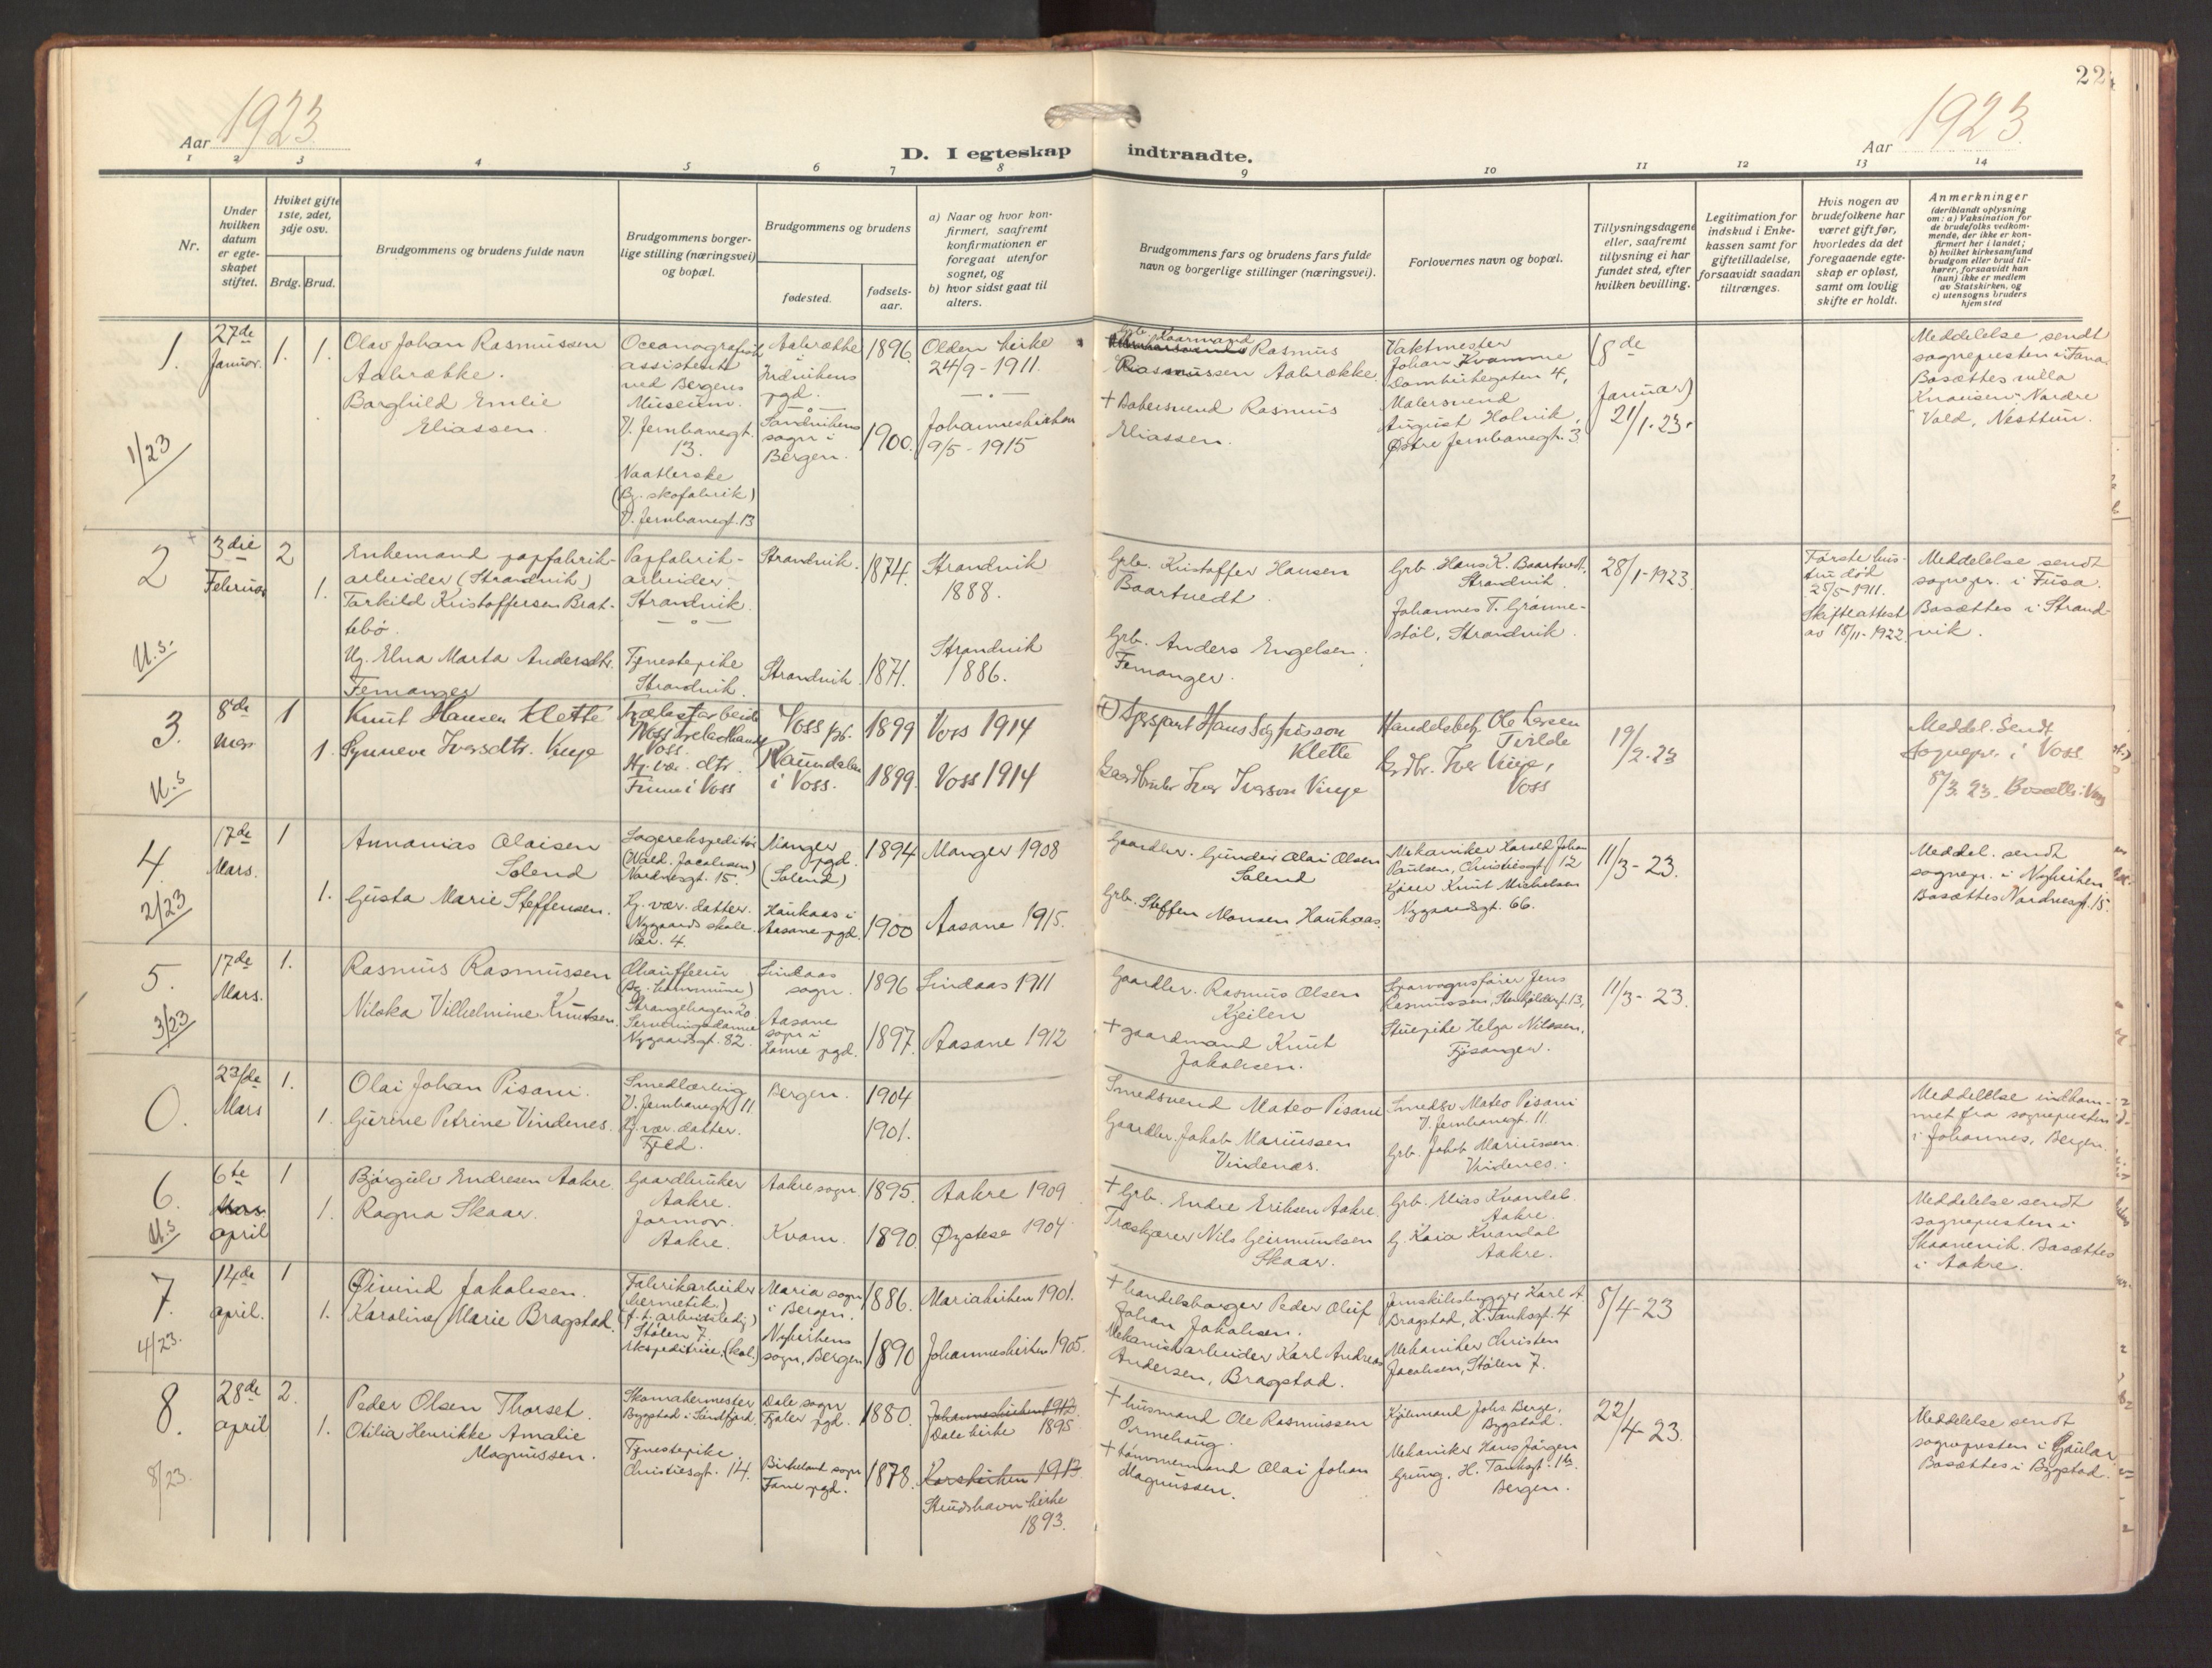 22
Aar 1923
Aar 1923.
D. I egteskap indtraadte.
1 2 3 4 5 6 7 8 9 10 11 12 13 14
Nr.
Under hvilken datum er egteskapet stiftet.
Hviket gifte 1ste, 2det, 3dje osv.
Brdg. Brud.
Brudgommens og brudens fulde navn
Brudgommens borgerlige stilling (næringsvei) og bopæl.
Brudgommens og brudens
fødested.
fødselsaar.
a) Naar og hvor konfirmert, saafremt konfirmationen er foregaat utenfor sognet, og
b) hvor sidst gaat til alters.
Brudgommens fars og brudens fars fulde navn og borgerlige stillinger (næringsvei).
Forlovernes navn og bopæl.
Tillysningsdagene eller, saafremt tillysning ei har fundet sted, efter hvilken bevilling.
Legitimation for indskud i Enkekassen samt for giftetilladelse, forsaavidt saadan tiltrænges.
Hvis nogen av brudefolkene har været gift før, hvorledes da det foregaaende egteskap er opløst, samt om lovlig skifte er holdt.
Anmerkninger
(deriblandt oplysning om: a) Vaksination for de brudefolks vedkommende, der ikke er konfirmert her i landet; b) hvilket kirkesamfund brudgom eller brud tilhører, forsaavidt han (hun) ikke er medlem av Statskirken, og c) utensogns bruders hjemsted
1. 1/23
27de Januar.
1. 1.
Olav Johan Rasmussen
Aabrække.
Borghild Emilie
Eliassen.
Oceanografisk
assistent
ved Bergens
Museum.
V. Jernbanegt.
13.
Naatlerske
(Bg. skofabrik)
V. Jernbanegt. 13
Aabrække
Indvikens
pgd.
Sandvikens
sogn i
Bergen.
1896
1900.
Olden kirke
24/9 - 1911.
Johanneskirken
9/5 - 1915
Rasmus
Rasmussen Aabrække.
+ Bøkersvend Rasmus
Eliassen.
Vaktmester
Johan Kvamme
Domkirkegaten 4,
Malersvend
August Holvik,
Østre Jernbanegt. 3
(8de
Januar)
21/1-23.
Meddelelse sendt
sognepresten i Fana.
Bosættes villa
Knausen - Nordre
Vald, Nesttun.
2 U.s.
3die Februar
2 1.
Enkemand papfabrik-
arbeider (Strandvik)
Torkild Kristoffersen Brat-
tebø.
Ug. Elna Marta Andersdtr.
Femanger
Papfabrik-
arbeider
Strandvik.
Tjenestepike
Strandvik.
Strandvik.
Strandvik.
1874.
1871.
Strandvik
1888.
Strandvik
1886.
Grb. Kristoffer Hansen
Baartvedt.
Grb. Anders Engelsen
Femanger.
Grb. Hans K. Baartvedt,
Strandvik.
Johannes T. Grønne-
støl, Strandvik.
28/1-1923
Første hus-
tru død
25/5-1911.
Skifteattest
av 18/11-1922
Meddelelse sendt
sognepr. i Fusa.
Bosættes i Strand-
vik.
3. U.s
8de mars
1 1.
Knut Hansen Klette
Synneve Iversdtr. Vinje
Voss.
Hj. vær. dtr.
Finne i Voss
Voss
Raundalen
i Voss.
1899
1899.
Voss 1914
Voss 1914
Hans Sjursson
Klette
Gaardbruker Iver Iverson Vinje
Handelsbetj. Ole Larsen
Tvilde
Grdbr. Iver Vinje,
Voss
19/2-23
Meddel. Sendt
sognepr. i Voss
8/3. 23. Bosættes i Voss
4. 2/23
17de Mars.
1 1.
Annanias Olaisen
Solend
Gusta Marie Steffensen.
Lagerekspeditør
(Vald. Jacobsen)
Nordnesgt. 15.
Hj. vær. datter.
Nygaards skole
Vær. 4.
Manger
pgd.
(Solend)
Haukaas i
Aasane pgd.
1894
1900
Manger 1908
Aasane 1915.
Gaardbr. Gunder Olai Olsen
Solend
Grb. Steffen Monsen Haukaas.
Mekaniker Harald Johan
Paulsen, Christiesgt. 12
Kjører Knut Michelsen
Nygaardsgt. 66.
11/3-23.
Meddel. sendt
sognepr. i Nykirken.
Bosættes Nordnesgt. 15.
5. 3/23
17de Mars.
1.
Rasmus Rasmussen
Nilska Vilhelmine Knutsen.
Chauffeur
(Bg. kommune)
Strangehagen 20
Serveringsdame
Nygaardsgt. 82.
Lindaas
sogn.
Aasane
sogn i
Hamre pgd.
1896
1897.
Lindaas 1911
Aasane 1912
Gaardbr. Rasmus Olsen
Kjeilen
+ gaardmand Knut
Jakobsen.
Sporvognsfører Jens
Rasmussen, Stenkjeldergt. 13,
Stuepike Helga Nilssen,
Fjøsanger.
11/3-23.
0.
23/de Mars
1. 1.
Olai Johan Pisani.
Gurine Petrine Vindenes.
Smedlærling
V. Jernbanegt. 11
Hj. vær. datter.
Fjeld.
Bergen.
1904
1901.
Smedsvend Mateo Pisani
Gaardbr. Jakob Mariussen
Vindenes.
Smedsv. Mateo Pisani
V. Jernbanegt. 11.
Grb. Jakob Mariussen.
Vindenes.
Meddelelse indkom-
met fra sognepresten
i Johannes, Bergen.
6. U.s
6te Mars april
1 1.
Bjørgulv Endresen Aakre.
Ragna Skaar.
Gaardbruker
Aakre.
Jormor.
Aakre.
Aakre sogn.
Kvam.
1895.
1890.
Aakre 1909
Øystese 1904.
+ Grb. Endre Eriksen Aakre.
Træskjærer Nils Geirmundsen
Skaar.
Grb. Elias Kvandal.
Aakre.
G. Kaia Kvandal
Aakre.
Meddelelse sendt
sognepresten i
Skaanevik. Bosættes
i Aakre.
7. 4/23.
14de april.
1 1.
Øivind Jakobsen.
Karoline Marie Bragstad.
Fabrikarbeider
(hermetik.)
(f. t. arbeidsledig)
Stølen 7.
Ekspeditrice. (kol.)
Maria sogn
i Bergen.
Nykirkens
sogn, Bergen
1886.
1890
Mariakirken 1901.
Johanneskirken 1905.
+ handelsborger Peder Oluf
Johan Jakobsen.
Mekanisk arbeider Karl Andreas
Andersen, Bragstad.
Jernskibsbygger Karl A.
Bragstad, H. Tanksgt. 4
Mekaniker Christen
Jacobsen, Stølen 7.
8/4-23
8. 8/23.
28de april
2. 1.
Peder Olsen Thorset.
Otilia Henrikke Amalie
Magnussen.
Skomakermester
Bygstad i Søndfjord.
Tjenestepike
Christiesgt. 14.
Dale sogn
Fjaler pgd.
Birkeland sogn
Fane pgd.
1880.
1878.
Johanneskirken 1912
Dale kirke 1895
Korskirken 1913
Strudshavn kirke
1893.
+ husmand Ole Rasmussen
Ormehaug.
+ tømmermand Olai Johan
Magnussen.
Kjøbmand Johs Berge,
Bygstad.
Mekaniker Hans Jørgen
Grung, H. Tanksgt. 16.
Bergen.
22/4-23.
Meddelelse sendt
sognepresten i Gaular
Bosættes i Bygstad.